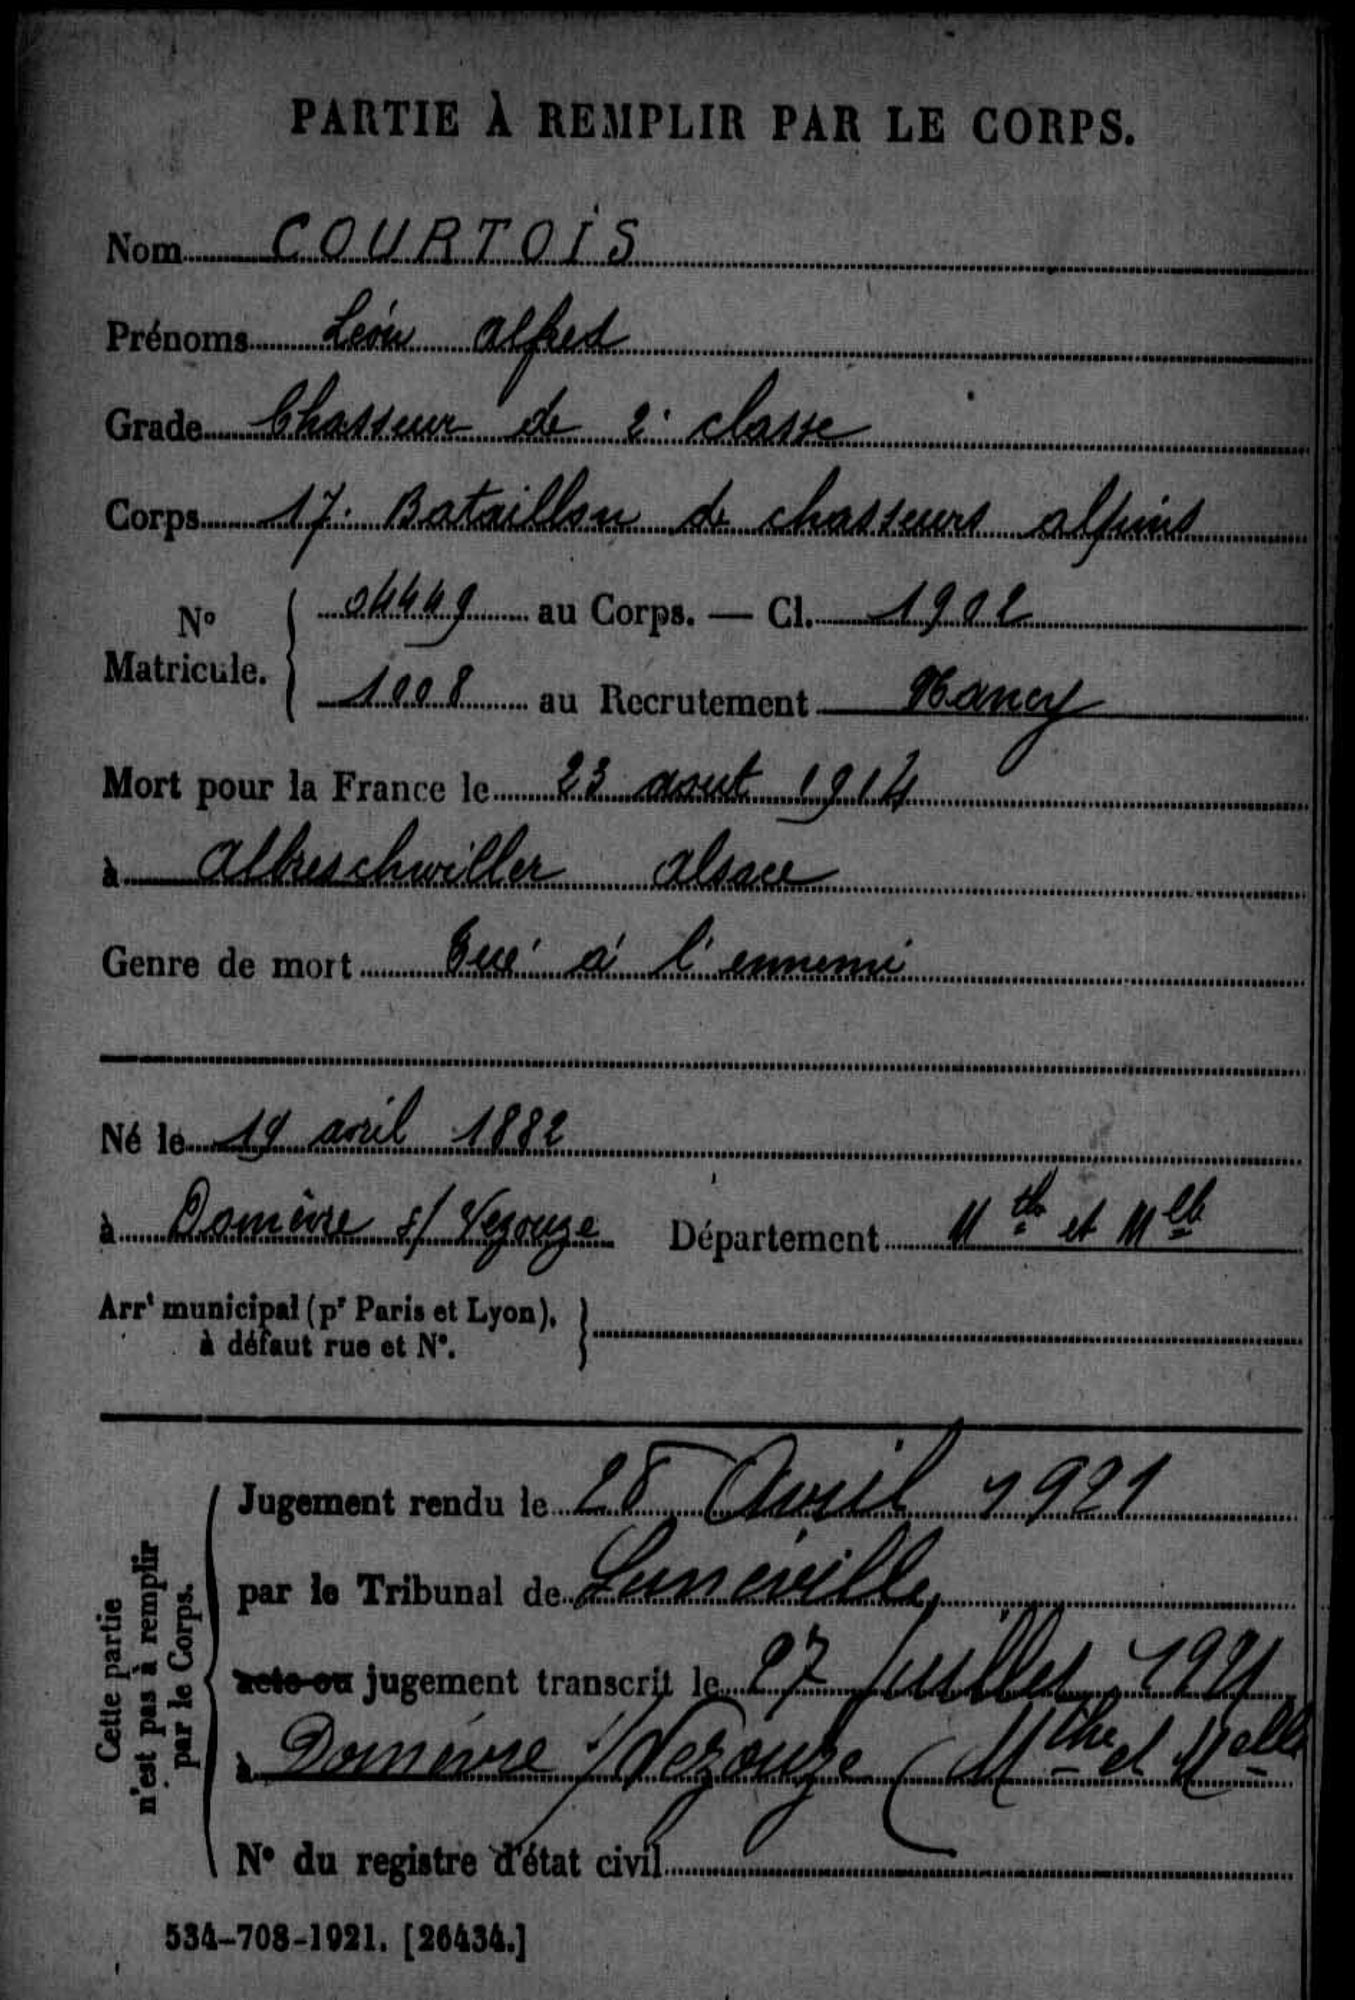 PARTIE À REMPLIR PAR LE CORPS.
Nom COURTOIS
Prénoms Léon Alfred
Grade Chasseur de 2e classe
Corps 17e Bataillon de chasseurs alpins
No Matricule. { 04449 au Corps. — Cl. 1902
1008 au Recrutement Nancy
Mort pour la France le 23 aout 1914
à Albreschwiller Alsace
Genre de mort Tué à l'ennemi
Né le 19 avril 1882
à Domèvre s/ Vezouze Département Mthe et Mlle
Arrt municipal (pr Paris et Lyon), à défaut rue et No.
Cette partie n'est pas à remplir par le Corps.
Jugement rendu le 28 Avril 1921
par le Tribunal de Lunéville
acte ou jugement transcrit le 27 Juillet 1921
à Domèvre s/Vezouze (Mthe et Melle
No du registre d'état civil
534-708-1921. [26434.]